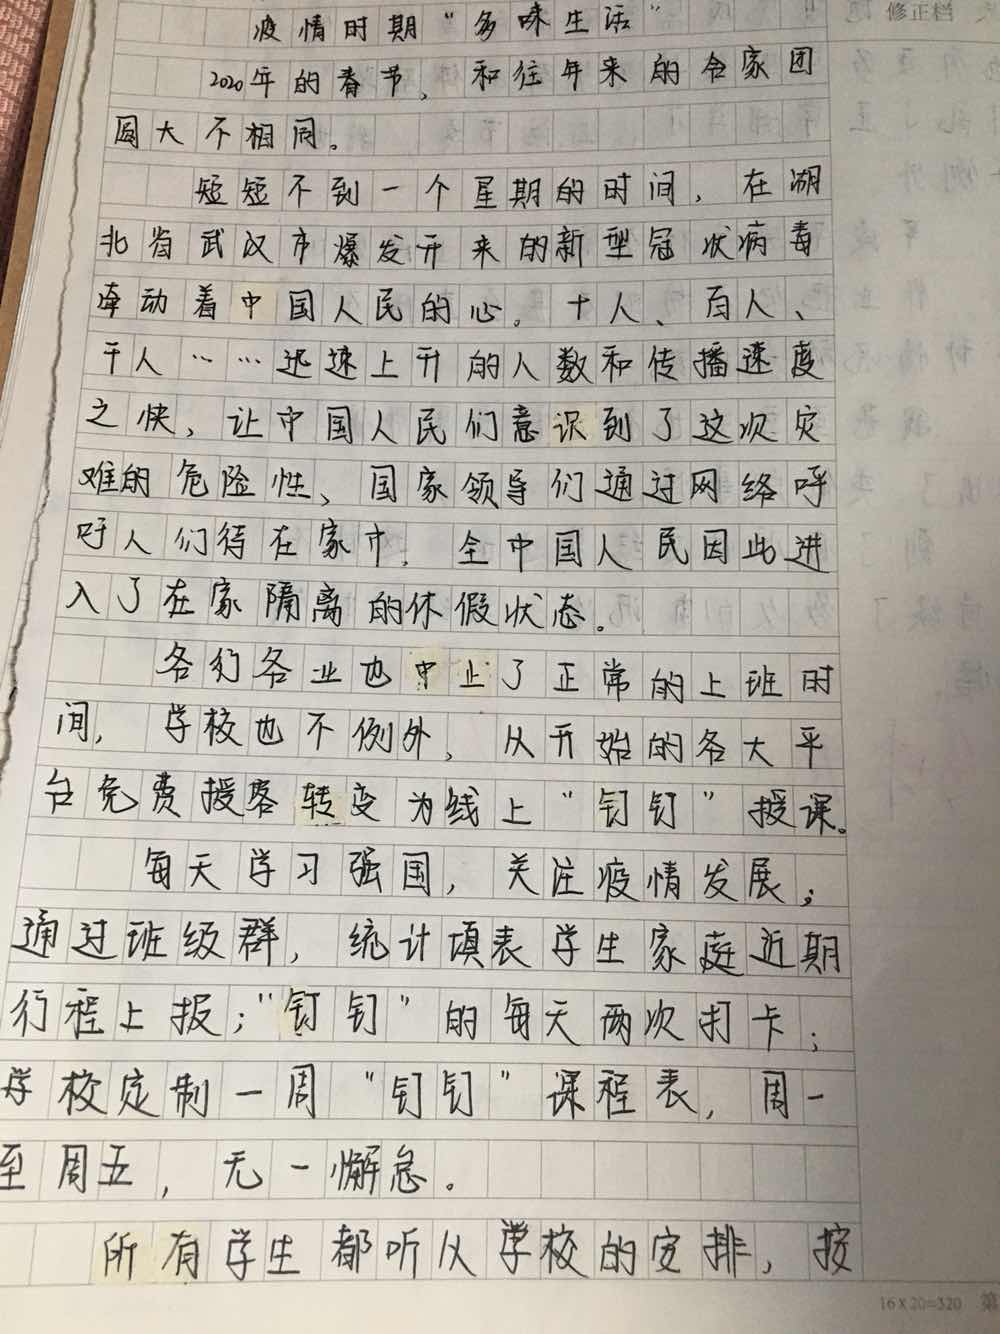 修正栏
疫情时期“多味生活”
2020年的春节，和往年来的合家团
圆大不相同。
短短不到一个星期的时间，在湖
北省武汉市爆发开来的新型冠状病毒
牵动着中国人民的心。十人、百人、
千人……迅速上升的人数和传播速度
之快，让中国人民们意识到了这次灾
难的危险性、国家领导们通过网络呼
吁人们待在家中，全中国人民因此进
入了在家隔离的休假状态。
各行各业也中止了正常的上班时
间，学校也不例外，从开始的各大平
台免费授客转变为线上“钉钉”授课。
每天学习强国，关注疫情发展；
通过班级群，统计填表学生家庭近期
行程上报；“钉钉”的每天两次打卡；
学校定制一周“钉钉”课程表，周一
至周五，无一懈怠。
所有学生都听从学校的安排，按
16×20=320 第